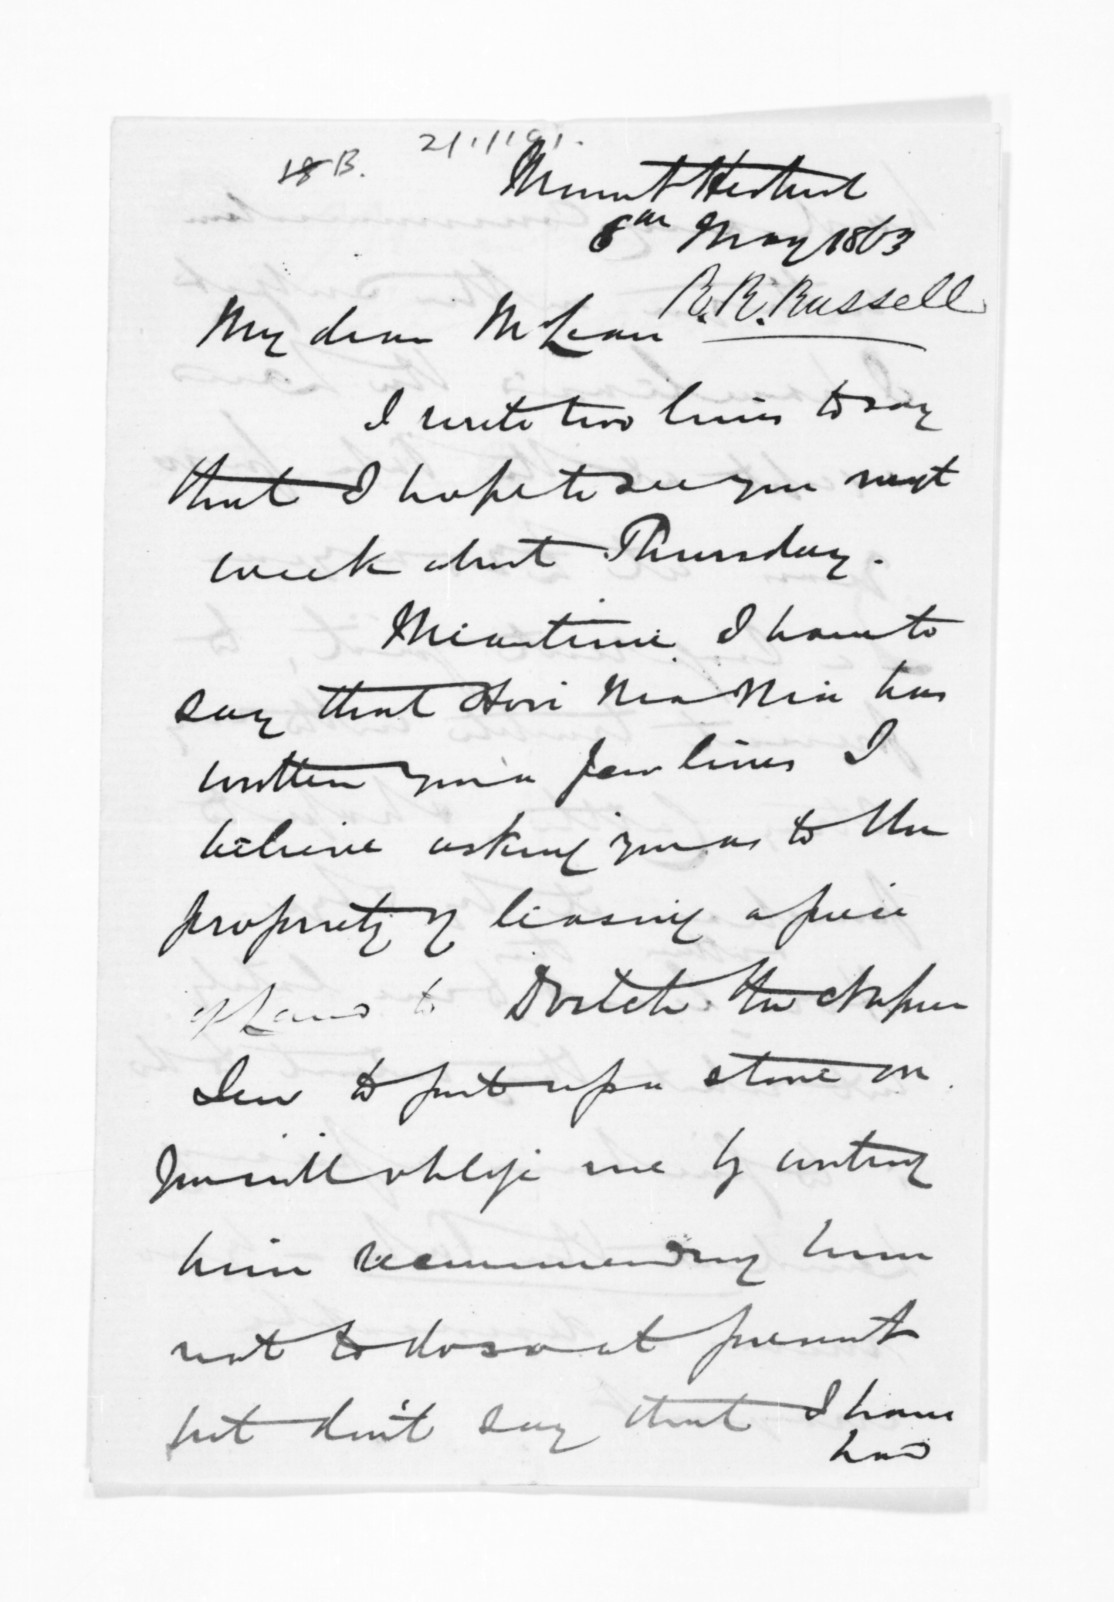 18 B. 2/1/191.
Mount Herbert
6th May 1863
R. R. Russell
My dear McLean
I write two lines to say
that I hope to see you next
week about Thursday.
Meantime I have to
say that Hori Nia Nia has
written you a few lines I
believe asking you as to the
propriety of leasing a piece
of Land to the Napier
Jew to put up a store on
You will oblige me by writing
him recommending him
not to do so at present
but don't say that I have
had